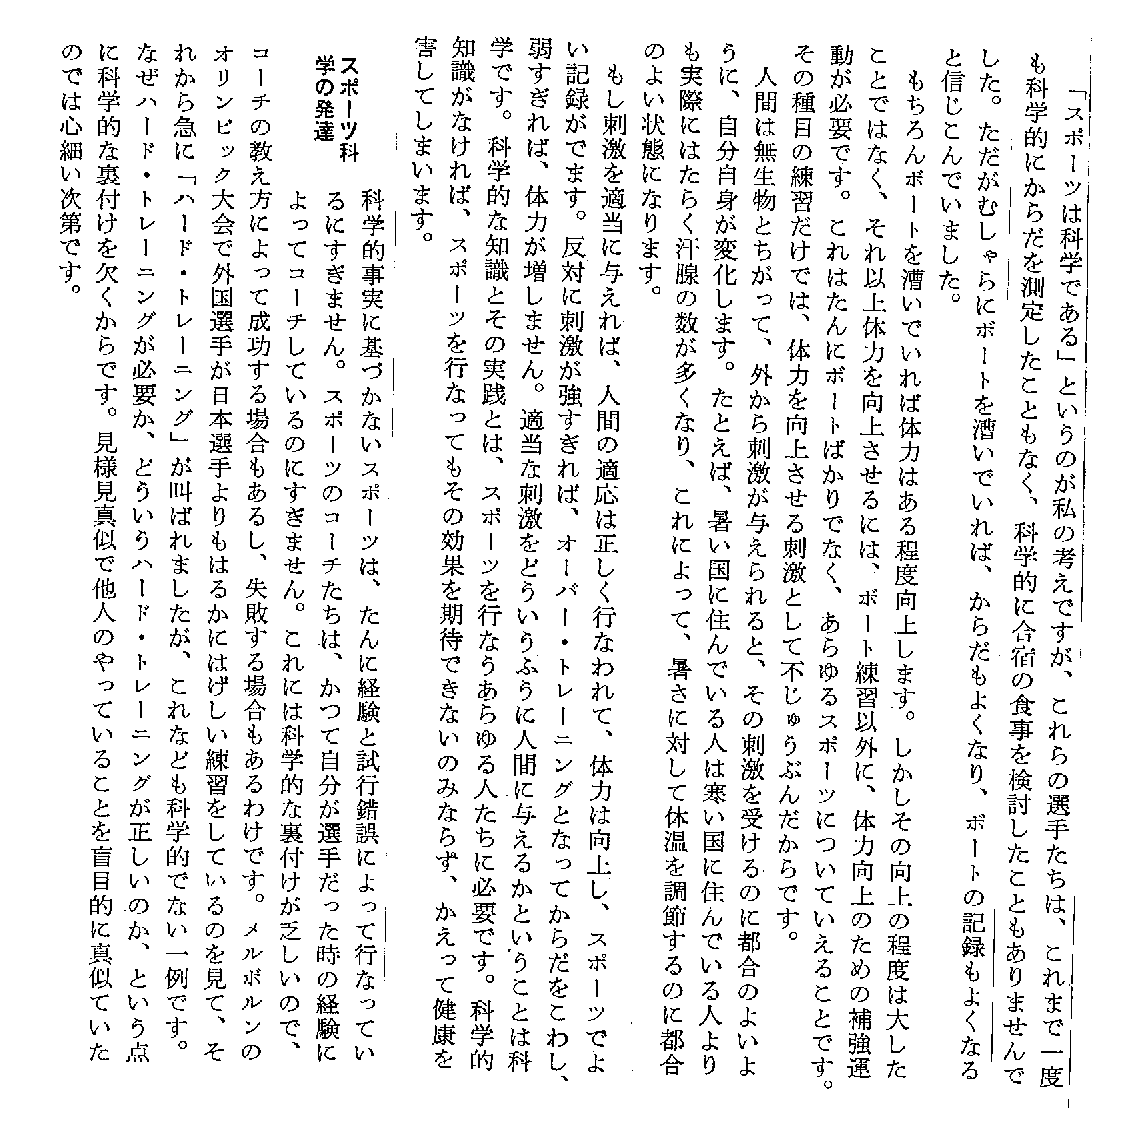 「スポーツは科学である」というのが私の考えですが、これらの選手たちは、これまで一度
も科学的にからだを測定したこともなく、科学的に合宿の食事を検討したこともありませんで
した。ただがむしゃらにボートを漕いでいれば、からだもよくなり、ボートの記録もよくなる
と信じこんでいました。
もちろんボートを漕いでいれば体力はある程度向上します。しかしその向上の程度は大した
ことではなく、それ以上体力を向上させるには、ボート練習以外に、体力向上のための補強運
動が必要です。これはたんにボートばかりでなく、あらゆるスポーツについていえることです。
その種目の練習だけでは、体力を向上させる刺激として不じゅうぶんだからです。
人間は無生物とちがって、外から刺激が与えられると、その刺激を受けるのに都合のよいよ
うに、自分自身が変化します。たとえば、暑い国に住んでいる人は寒い国に住んでいる人より
も実際にはたらく汗腺の数が多くなり、これによって、暑さに対して体温を調節するのに都合
のよい状態になります。
もし刺激を適当に与えれば、人間の適応は正しく行なわれて、体力は向上し、スポーツでよ
い記録がでます。反対に刺激が強すぎれば、オーバー・トレーニングとなってからだをこわし、
弱すぎれば、体力が増しません。適当な刺激をどういうふうに人間に与えるかということは科
学です。科学的な知識とその実践とは、スポーツを行なうあらゆる人たちに必要です。科学的
知識がなければ、スポーツを行なってもその効果を期待できないのみならず、かえって健康を
害してしまいます。
スポーツ科
学の発達
科学的事実に基づかないスポーツは、たんに経験と試行錯誤によって行なってい
るにすぎません。スポーツのコーチたちは、かつて自分が選手だった時の経験に
よってコーチしているのにすぎません。これには科学的な裏付けが乏しいので、
コーチの教え方によって成功する場合もあるし、失敗する場合もあるわけです。メルボルンの
オリンピック大会で外国選手が日本選手よりもはるかにはげしい練習をしているのを見て、そ
れから急に「ハード・トレーニング」が叫ばれましたが、これなども科学的でない一例です。
なぜハード・トレーニングが必要か、どういうハード・トレーニングが正しいのか、という点
に科学的な裏付けを欠くからです。見様見真似で他人のやっていることを盲目的に真似ていた
のでは心細い次第です。